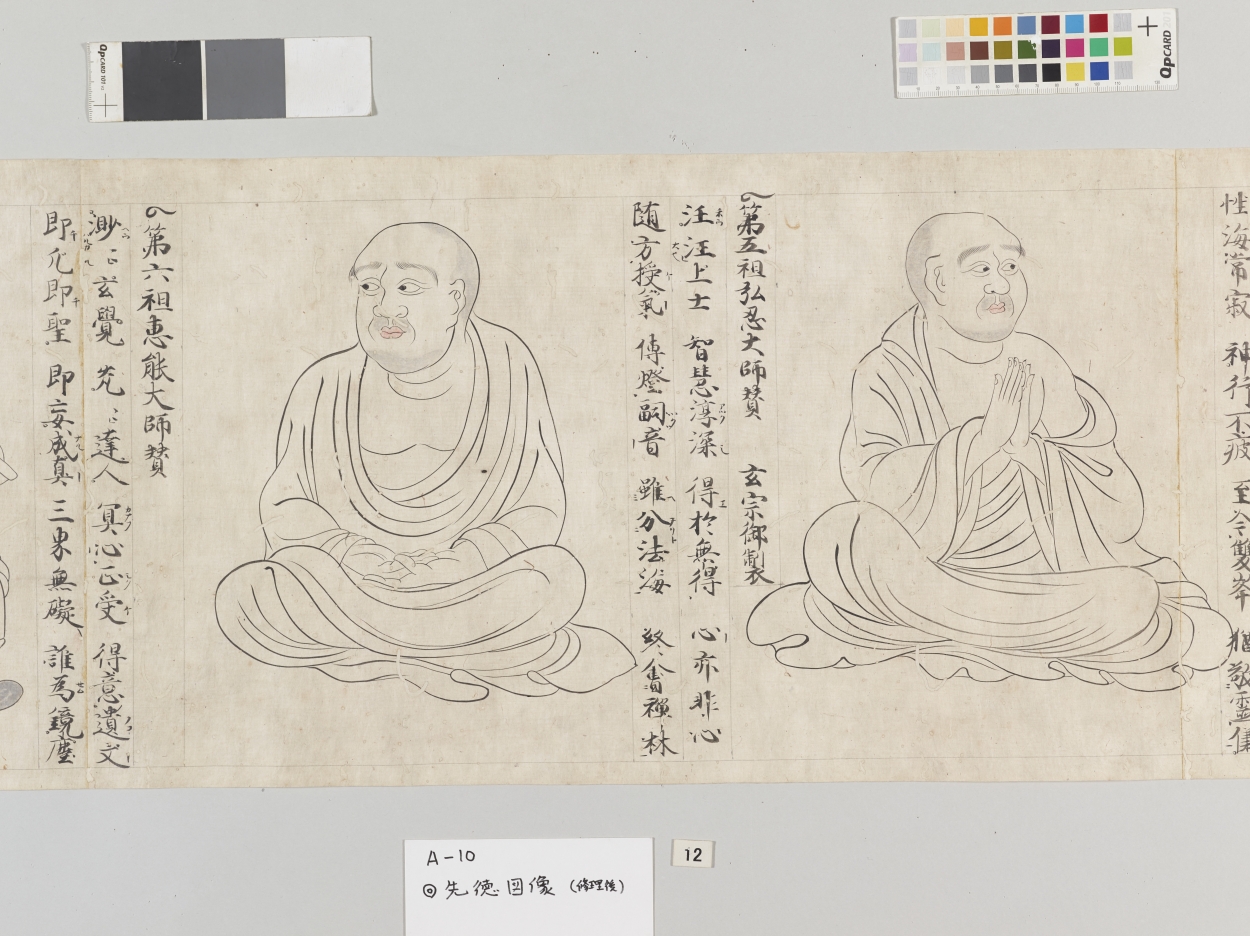 性海常寂 神行不疲 至今雙峯 猶敬靈儀
第五祖弘忍大師賛 玄宗御製
汪汪上士 智慧淳深 得於無得 心亦非心
随方授氣 傳燈嗣音 雖分法海 終會禪林
第六祖恵能大師賛
渺〻玄覺 〻達人 冥心正受 得意遺文
即凢即聖 即妄成真 三界無礙 誰為鏡塵
QpCARD 101
QpCARD 201
A-10
◎先徳図像(修理後)
12